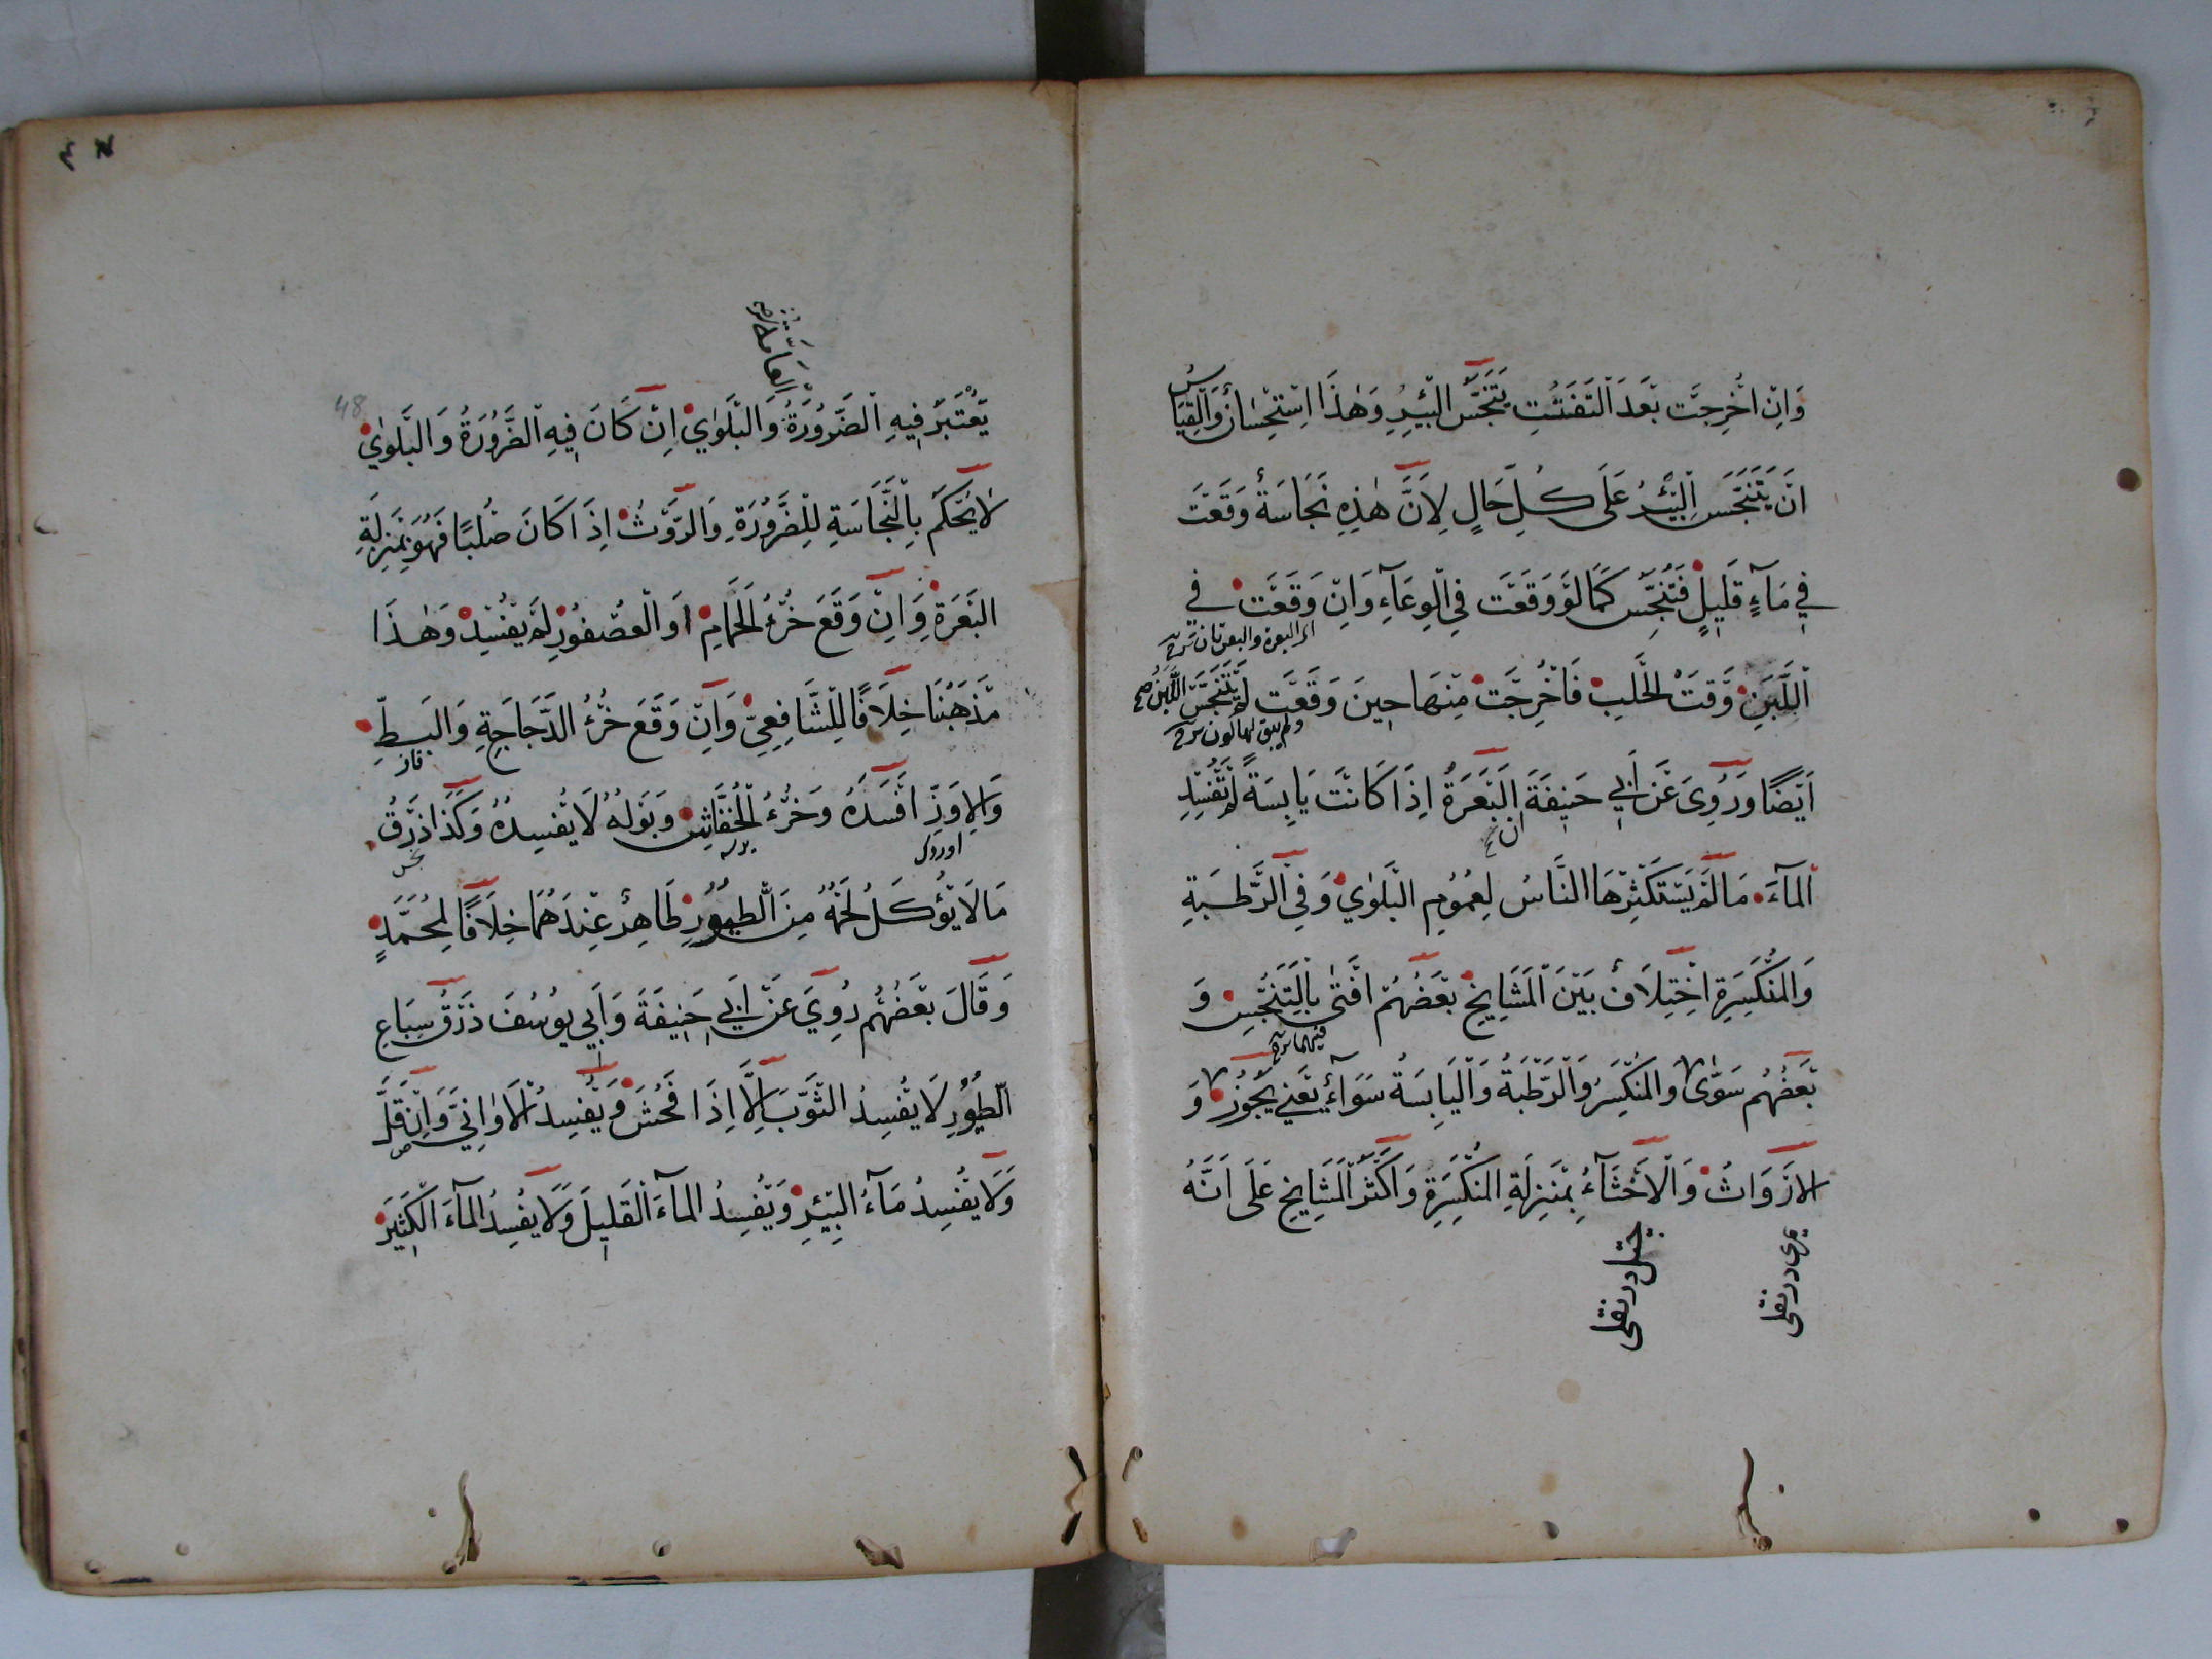 وَاِنْ اُخْرِجَتْ بَعْدَ التَّفَتُّتِ يَتَنَجَّسُ الْبِئْرُ وَهٰذَا اِسْتِحْسَانٌ وَالْقِيَاسُ
اَنْ يَتَنَجَّسَ الْبِئْرُ عَلَى كُلِّ حَالٍ لِاَنَّ هٰذِهِ نَجَاسَةٌ وَقَعَتْ
فِي مَآءٍ قَلِيلٍ فَتُنَجِّسُ كَمَا لَوْ وَقَعَتْ فِي الْوِعَآءِ وَاِنْ وَقَعَتْ فِي
اى البعرة والبعرتان شرح
اللَّبَنِ وَقْتَ الْحَلْبِ فَاُخْرِجَتْ مِنْهَا حِينَ وَقَعَتْ لَمْ يَتَنَجَّسِ اللَّبَنُ صح
ولم يبق لها لون شرح
اَيْضًا وَرُوِيَ عَنْ اَبِي حَنِيفَةَ الْبَعْرَةُ اِذَا كَانَتْ يَابِسَةً لَمْ تُفْسِدِ
ان
الْمَآءَ مَا لَمْ يَسْتَكْثِرْهَا النَّاسُ لِعُمُومِ الْبَلْوٰي وَفِي الرَّطْبَةِ
وَالْمُنْكَسِرَةِ اِخْتِلَافٌ بَيْنَ الْمَشَايِخِ بَعْضُهُمْ اَفْتٰى بِالتَّنَجُّسِ وَ
فيهما شرح
بَعْضُهُمْ سَوّٰى وَالْمُنْكَسِرُ وَالرَّطْبَةُ وَالْيَابِسَةُ سَوَآءٌ يَعْنِي يَجُوزُ وَ
الْاَرْوَاثُ وَالْاَخْثَآءُ بِمَنْزِلَةِ الْمُنْكَسِرَةِ وَاَكْثَرُ الْمَشَايِخِ عَلَى اَنَّهُ
العَامَّة
48
يُعْتَبَرُ فِيهِ الضَّرُورَةُ وَالْبَلْوٰي اِنْ كَانَ فِيهِ الضَّرُورَةُ وَالْبَلْوٰي
لَا يُحْكَمُ بِالنَّجَاسَةِ لِلضَّرُورَةِ وَالرَّوْثُ اِذَا كَانَ صُلْبًا فَهُوَ بِمَنْزِلَةِ
الْبَعْرَةِ وَاِنْ وَقَعَ خُرْءُ الْحَمَامِ اَوِ الْعُصْفُورِ لَمْ يُفْسِدْ وَهٰذَا
مَذْهَبُنَا خِلَافًا لِلشَّافِعِيِّ وَاِنْ وَقَعَ خُرْءُ الدَّجَاجَةِ وَالْبَطِّ
قاز
وَالْاِوَزِّ اَفْسَدَهُ وَخُرْءُ الْخُفَّاشِ وَبَوْلُهُ لَا يُفْسِدُهُ وَكَذَا ذَرْقُ
اوردك
نجس
مَا لَا يُؤْكَلُ لَحْمُهُ مِنَ الطُّيُورِ طَاهِرٌ عِنْدَهُمَا خِلَافًا لِمُحَمَّدٍ
وَقَالَ بَعْضُهُمْ رُوِيَ عَنْ اَبِي حَنِيفَةَ وَاَبِي يُوسُفَ ذَرْقُ سِبَاعِ
الطُّيُورِ لَا يُفْسِدُ الثَّوْبَ اِلَّا اِذَا فَحُشَ وَيُفْسِدُ الْاَوَانِيَ وَاِنْ قَلَّ
وَلَا يُفْسِدُ مَآءَ الْبِئْرِ وَيُفْسِدُ الْمَآءَ الْقَلِيلَ وَلَا يُفْسِدُ الْمَآءَ الْكَثِيرَ